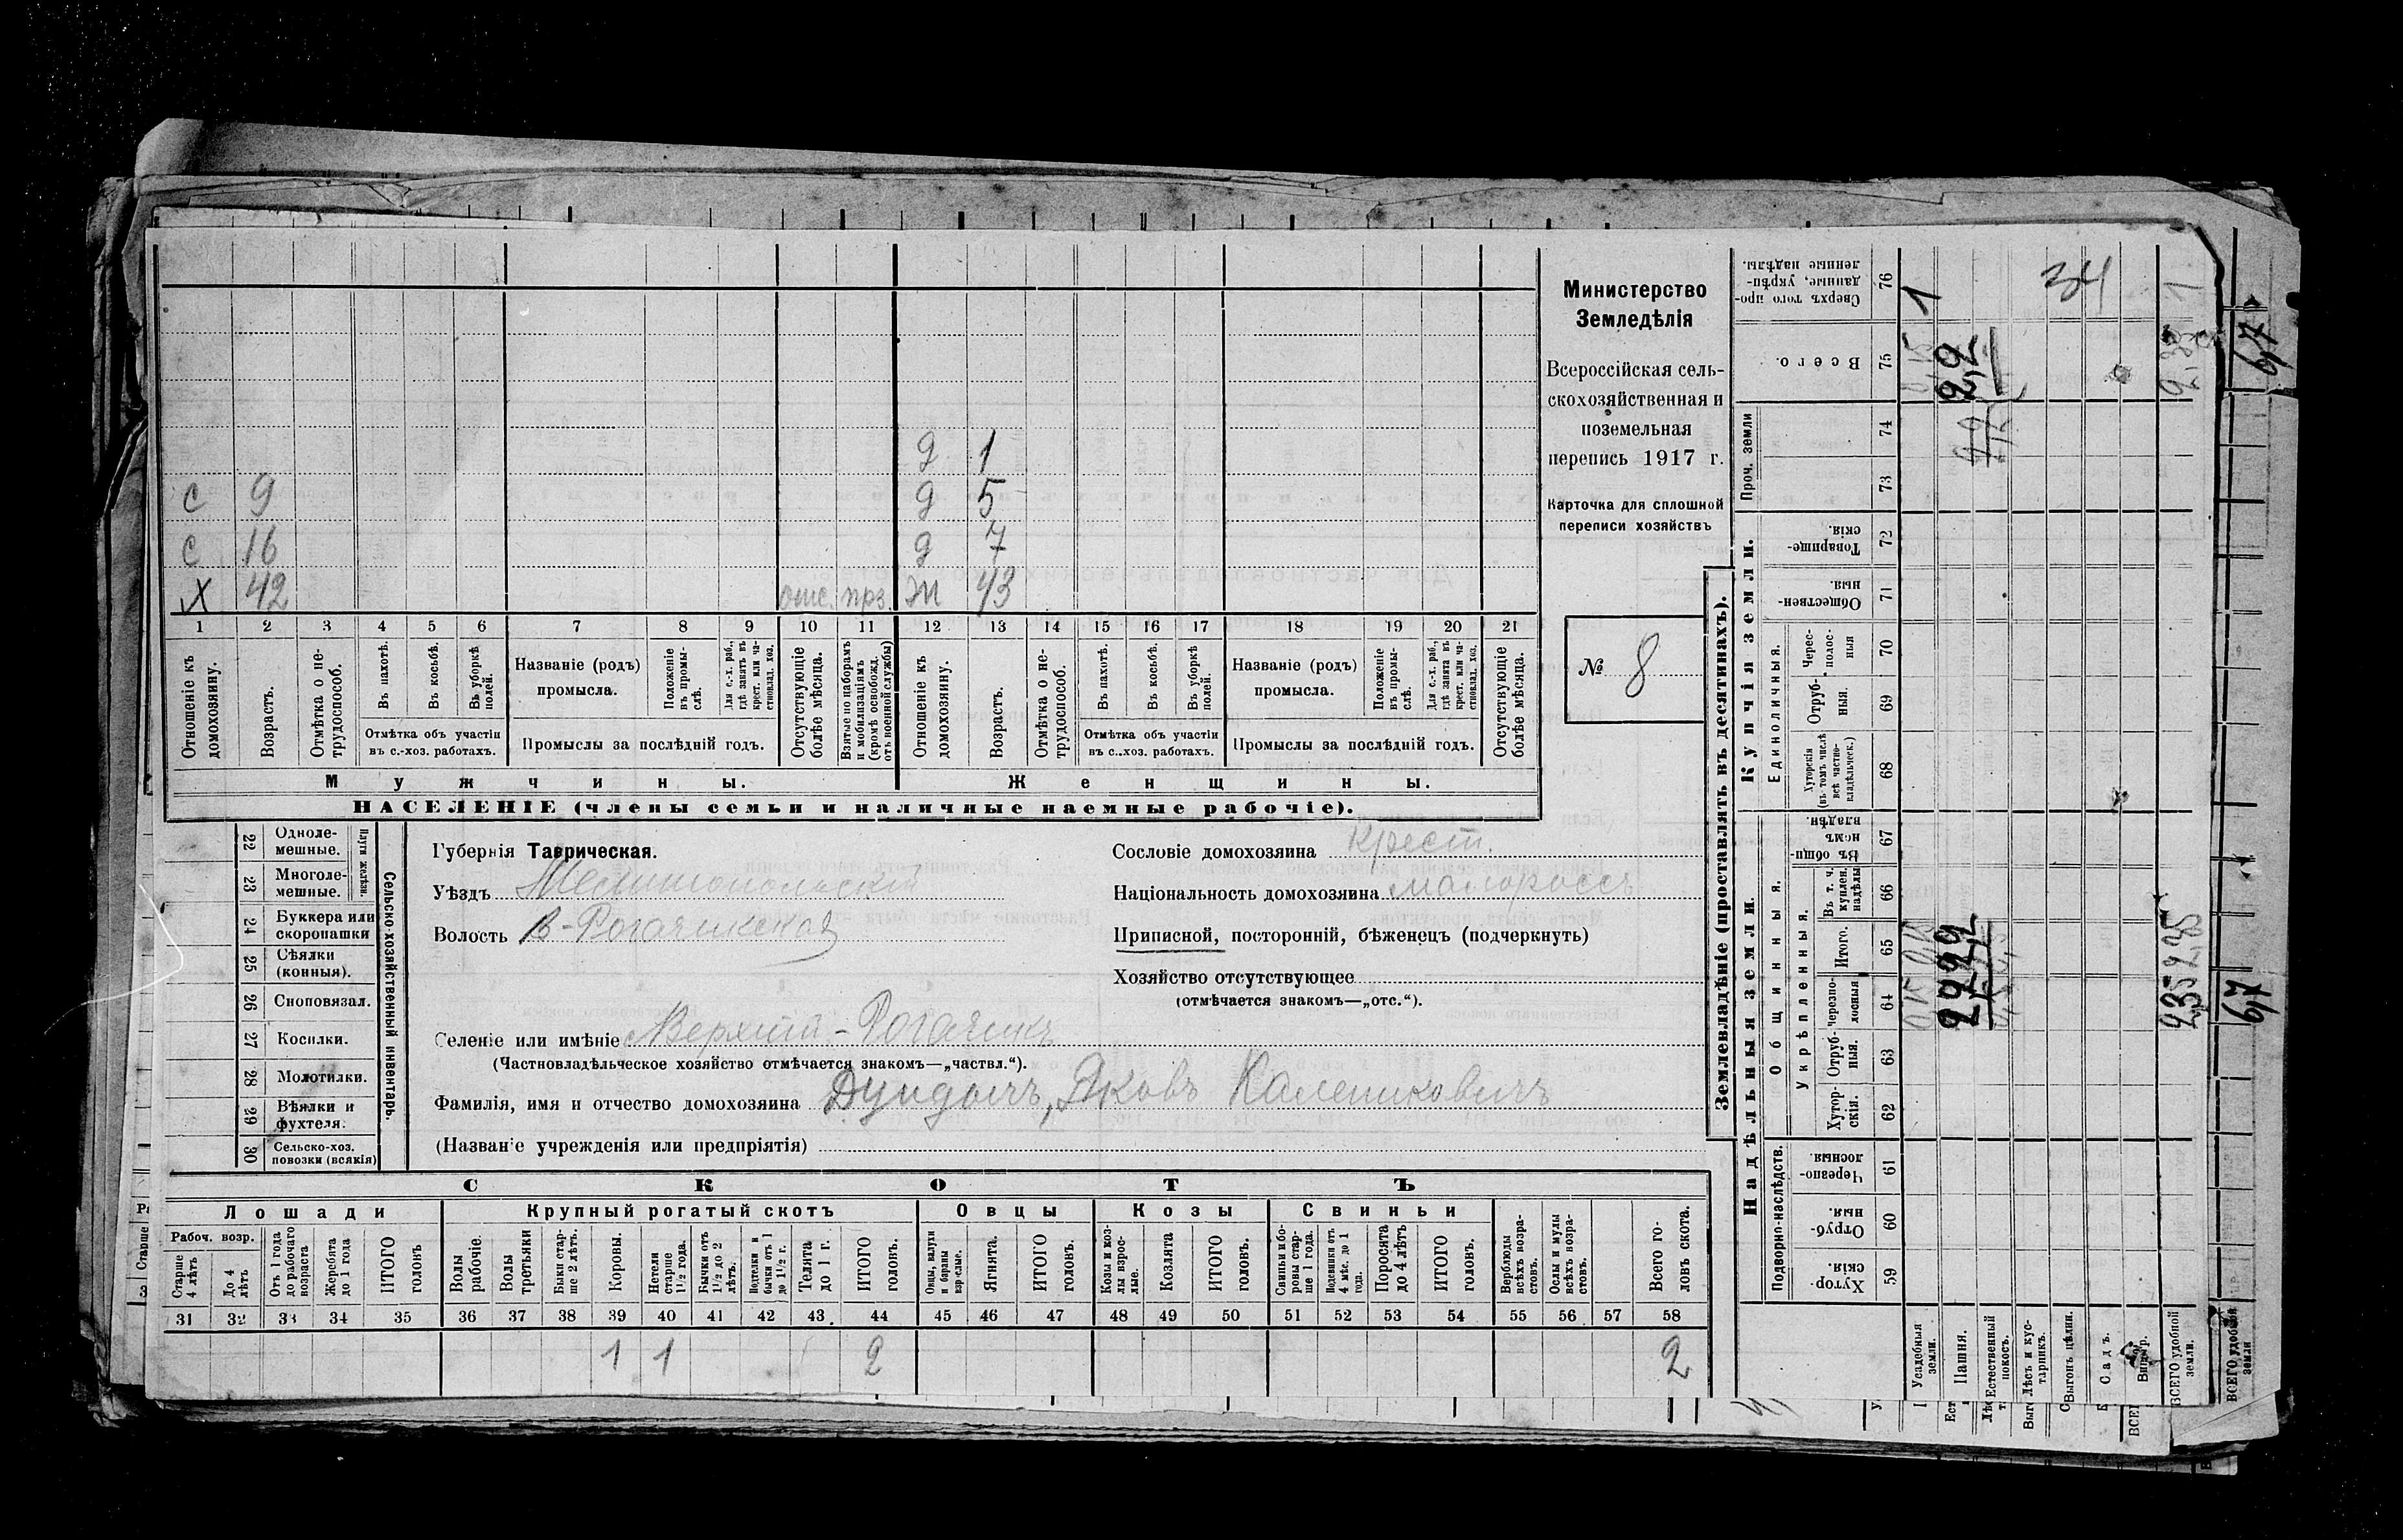 Министерство
Земледѣлія
Всероссійская сель-
скохозяйственная и
поземельная
перепись 1917 г.
Карточка для сплошной
переписи хозяйствъ
№ 8
д 1
с 9 д 5
с 16 д 7
х 42 отс. прз. ж 43
1 2 3 4 5 6 7 8 9 10 11 12 13 14 15 16 17 18 19 20 21
Отношеніе къ домохозяину.
Возрастъ.
Отмѣтка о не-трудоспособ.
Въ пахотѣ.
Въ косьбѣ.
Въ уборкѣ полей.
Отмѣтка объ участіи
въ с.-хоз. работахъ.
Названіе (родъ)
промысла.
Положеніе въ промы-слѣ.
Для с.-х. раб., гдѣ занятъ въ крест. или ча-стновлад. хоз.
Промыслы за послѣдній годъ.
Отсутствующіе болѣе мѣсяца.
Взятые по наборамъ и мобилизаціямъ (кромѣ освобожд. отъ военной службы)
Отношеніе къ домохозяину.
Возрастъ.
Отмѣтка о не-трудоспособ.
Въ пахотѣ.
Въ косьбѣ.
Въ уборкѣ полей.
Отмѣтка объ участіи
въ с.-хоз. работахъ.
Названіе (родъ)
промысла.
Положеніе въ промы-слѣ.
Для с.-х. раб., гдѣ занята въ крест. или ча-стновлад. хоз.
Промыслы за послѣдній годъ.
Отсутствующіе болѣе мѣсяца.
Мужчины. Женщины.
НАСЕЛЕНІЕ (члены семьи и наличные наемные рабочіе).
22 Одноле-мешные.
23 Многоле-мешные.
Плуги желѣзн.
24 Буккера или скоропашки
25 Сѣялки (конныя).
26 Сноповязал.
27 Косилки.
28 Молотилки.
29 Вѣялки и фухтеля.
30 Сельско-хоз. повозки (всякія)
Сельско-хозяйственный инвентарь.
Губернія Таврическая.
Уѣздъ Мелитопольскій
Волость В-Рогачикская
Селеніе или имѣніе Верхній-Рогачикъ
(Частновладѣльческое хозяйство отмѣчается знакомъ—„частвл.“).
Фамилія, имя и отчество домохозяина Дундычъ, Яковъ Калениковичъ
(Названіе учрежденія или предпріятія)
Сословіе домохозяина Крест.
Національность домохозяина малороссъ
Приписной, посторонній, бѣженецъ (подчеркнуть)
Хозяйство отсутствующее
(отмѣчается знакомъ—„отс.“).
СКОТЪ
Лошади Крупный рогатый скотъ Овцы Козы Свиньи
Рабоч. возр.
Старше 4 лѣтъ
До 4 лѣтъ
Отъ 1 года до рабочаго возраста
Жеребята до 1 года
ИТОГО головъ
Волы рабочіе.
Волы третьяки
Быки стар-ше 2 лѣтъ.
Коровы.
Нетели старше 1½ года.
Бычки отъ 1½ до 2 лѣтъ.
Подтелки и бычки отъ 1 до 1½ г.
Телята до 1 г.
ИТОГО головъ.
Овцы, валухи и бараны взрослые.
Ягнята.
ИТОГО головъ.
Козы и коз-лы взрос-лые.
Козлята
ИТОГО головъ.
Свиньи и бо-ровы стар-ше 1 года.
Подсвинки отъ 4 мѣс. до 1 года.
Поросята до 4 лѣтъ
ИТОГО головъ.
Верблюды всѣхъ возра-стовъ.
Ослы и мулы всѣхъ возра-стовъ.
Всего го-ловъ скота.
31 32 33 34 35 36 37 38 39 40 41 42 43 44 45 46 47 48 49 50 51 52 53 54 55 56 57 58
1 1 2 2
Землевладѣніе (проставлять въ десятинахъ).
Надѣльныя земли. Купчія земли. Проч. земли
Подворно-наслѣдств.
Общинныя.
Укрѣпленныя.
Единоличныя.
Хутор-скія. 59
Отруб-ныя. 60
Черезпо-лосныя. 61
Хутор-скія. 62
Отруб-ныя. 63
Черезпо-лосныя 64
Итого. 65
Въ т. ч. куплен. надѣлы 66
Въ общин-номъ владѣн. 67
Хуторскія (въ томъ числѣ всѣ частно-владѣльческ.) 68
Отруб-ныя. 69
Черес-полос-ныя 70
Обществен-ныя. 71
Товарище-скія. 72
73
74
Всего. 75
Сверхъ того про-данные, укрѣп-ленные надѣлы. 76
1
34
Усадебныя земли.
Пашня.
Естественный покосъ.
Лѣсъ и кус-тарникъ.
Выгонъ цѣлин.
Садъ.
ВСЕГО удобной земли.
ВСЕГО удобной земли
0,15
2,2
2,35
6,7
6,7